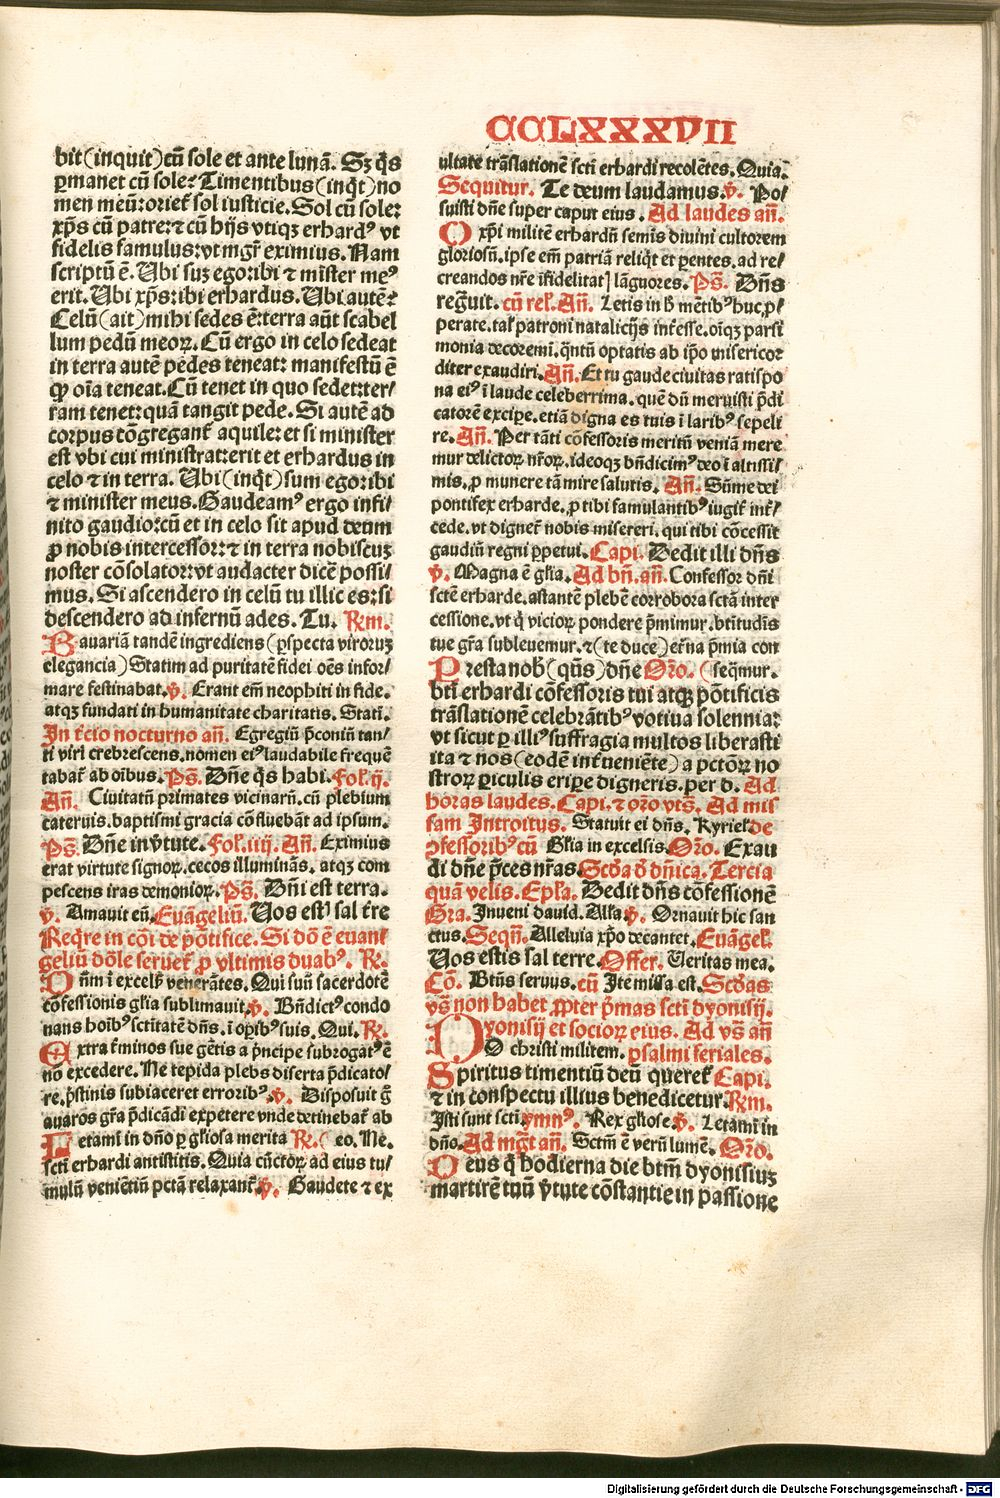 CCLXXXVII
bit(inquit)cū sole et ante lunā. Sꝫ q̄s
ꝑmanet cū sole? Timentibus(inq̄t)no
men meū:oriet᷑ sol iusticie. Sol cū sole:
xp̄s cū patre:⁊ cū hijs vtiqꝫ erhardꝰ vt
fidelis famulus:vt mgr̄ eximius. Nam
scriptū ē. Ubi suꝫ ego:ibi ⁊ mīster meꝰ
erit. Ubi xp̄s:ibi erhardus. Ubi autē?
Celū(ait)mihi sedes ē:terra aūt scabel
lum pedū meoꝝ. Cū ergo in celo sedeat
in terra autē pedes teneat: manifestū ē
ꝙ oīa teneat. Cū tenet in quo sedet:ter/
ram tenet:quā tangit pede. Si autē ad
corpus cōgregant᷑ aquile:et si minister
est vbi cui ministrat:erit et erhardus in
celo ⁊ in terra. Ubi(inq̄t)sum ego:ibi
⁊ minister meus. Gaudeamꝰ ergo infi/
nito gaudio:cū et in celo sit apud deum
ꝓ nobis intercessor:⁊ in terra nobiscuꝫ
noster cōsolator:vt audacter dicē possi/
mus. Si ascendero in celū tu illic es:si
descendero ad infernū ades. Tu. Rm.
Bauariā tandē ingrediens(ꝑspecta viroruꝫ
elegancia)Statim ad puritatē fidei oēs infor/
mare festinabat. v̄. Erant em̄ neophiti in fide.
atqꝫ fundati in humanitate charitatis. Statī.
In t᷑cio nocturno an̄. Egregiū p̄coniū tan/
ti viri crebrescens.nomen eiꝰ laudabile frequē
tabat᷑ ab oībus. Ps̄. Dn̄e q̄s habi. fol.ij.
An̄. Ciuitatū primates vicinarū.cū plebium
cateruis.baptismi gracia cōfluebāt ad ipsum.
Ps̄. Dn̄e in v̄tute. fol.iiij. An̄. Eximius
erat virtute signoꝝ.cecos illuminās. atqꝫ com
pescens iras demonioꝝ. Ps̄. Dn̄i est terra.
v̄. Amauit eū. Euāgeliū. Uos estꝭ sal t᷑re
Req̄re in cōi de pōtifice. Si dō ē euan/
geliū dōle seruet᷑ ꝓ vltimis duabꝰ. R.
Dn̄m ī excelꝭ venerātes. Qui suū sacerdotē
cōfessionis gl̄ia sublimauit. v̄. Bn̄dictꝰ condo
nans hoībꝰ sctitatē dn̄s.ī oꝑibꝰ suis. Qui. R.
Extra t᷑minos sue gētis a p̄ncipe subrogatꝰ ē
nō excedere. Ne tepida plebs diserta p̄dicato/
re.p̄stinis subiaceret erroribꝰ. v̄. Disposuit ḡ
auaros gr̄a p̄dicādi expetere vnde detinebat᷑ ab
Letami in dn̄o ꝑ gl̄iosa merita R.( eo. Ne.
scti erhardi antistitis. Quia cūctoꝝ ad eius tu/
mulū veniētiū pctāa relaxant᷑. v̄. Gaudete ⁊ ex
ultate trāslationē scti erhardi recolētes. Quia.
Sequitur. Te deum laudamus. v̄. Po/
suisti dn̄e super caput eius. Ad laudes an̄.
O xp̄i militē erhardū semīs diuini cultorem
gloriosū.ipse em̄ patriā reliq̄t et ꝑentes.ad re/
creandos nr̄e īfidelitatꝭ lāguores. Ps̄. Dn̄s
regͣuit. cū rel. An̄. Letis in h̄ mētibꝰ huc,ꝓ/
perate.tal̓ patroni natalicijs int᷑esse.oīqꝫ parsi
monia decoremꝰ.q̄ntū optatis ab ip̄o misericor
diter exaudiri. An̄. Et tu gaude ciuitas ratispo
na eiꝰ ī laude celeberrima. que dū meruisti p̄di
catorē excipe.etiā digna es tuis ī laribꝰ sepeli
re. An̄. Per tāti cōfessoris meritū veniā mere
mur delictoꝝ nr̄oꝝ.ideoqꝫ bn̄dicimꝰ deo ī altissi/
mis.ꝓ munere tā mire salutis. An̄. Sūme dei
pontifex erharde.ꝓ tibi famulantibꝰ iugit᷑ int᷑/
cede.vt dignet᷑ nobis misereri.qui tibi cōcessit
gaudiū regni ꝑpetui. Capi. Dedit illi dn̄s
v̄. Magna ē gl̄ia. Ad bn̄. an̄. Confessor dn̄i
sctē erharde.astantē plebē corrobora sctā inter
cessione.vt q̄ vicioꝝ pondere p̄mimur.btitudīs
tue gr̄a subleuemur.⁊(te duce)et᷑na p̄mia con
Presta nobꝭ(qūs)dn̄e Oro. (seq̄mur.
bti erhardi cōfessoris tui atqꝫ pōtificis
trāslationē celebrātibꝰ votiua solennia:
vt sicut ꝑ illiꝰ suffragia multos liberasti
ita ⁊ nos(eodē int᷑ueniēte)a pctōꝝ no
stroꝝ ꝑiculis eriꝑe digneris.per d. Ad
horas laudes. Capi.⁊ oro vts̄. Ad mis
sam Introitus. Statuit ei dn̄s. Kyriel̓ de
ꝯfessoribꝰ cū Gl̄ia in excelsis. Oro. Exau
di dn̄e p̄ces nr̄as. Scd̓a d̓ dn̄ica. Tercia
quā velis. Epl̄a. Dedit dn̄s cōfessionē
Gra. Inueni dauid. Alla v̄. Ornauit hic san
ctus. Seqn̄. Alleluia xp̄o decantet. Euāgel.
Uos estis sal terre. Offer. Ueritas mea.
Cō. Btūs seruus. cū Ite missa est. Scd̓as
vs̄ non habet ꝓpter p̄mas scti dyonisij.
Dyonisij et socioꝝ eius. Ad vs̄ an̄
O christi militem. psalmi feriales.
Spiritus timentiū deū queret᷑ Capi.
⁊ in conspectu illius benedicetur. Rm.
Isti sunt scti. ymnꝰ. Rex gl̄iose v̄. Letami in
dn̄o. Ad mg̓t an̄. Sctm̄ ē verū lumē. Oro.
Deus q̄ hodierna die btm̄ dyonisiuꝫ
martirē tuū v̄tute cōstantie in passione
Digitalisierung gefördert durch die Deutsche Forschungsgemeinschaft - DFG